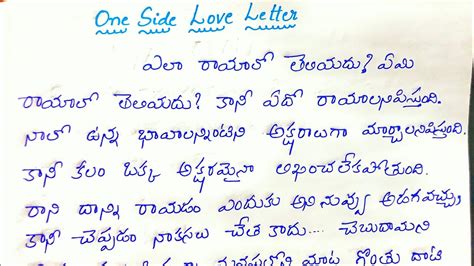 One Side Love Letter
ఎలా రాయాలో తెలియదు? ఏమి
రాయాలో తెలియదు? కానీ ఏదో రాయాలనిపిస్తుంది.
నాలో ఉన్న భావాలన్నింటిని అక్షరాలుగా మార్చాలనిపిస్తుంది.
కానీ కలం ఒక్క అక్షరమైనా లేకపోతుంది.
రాని దాన్ని రాయడం ఎందుకు అని నువ్వు అడగవచ్చు,
కానీ చెప్పడం నాకసలు చేత కాదు.... చెబుదామని
మాట గొంతు దాటి